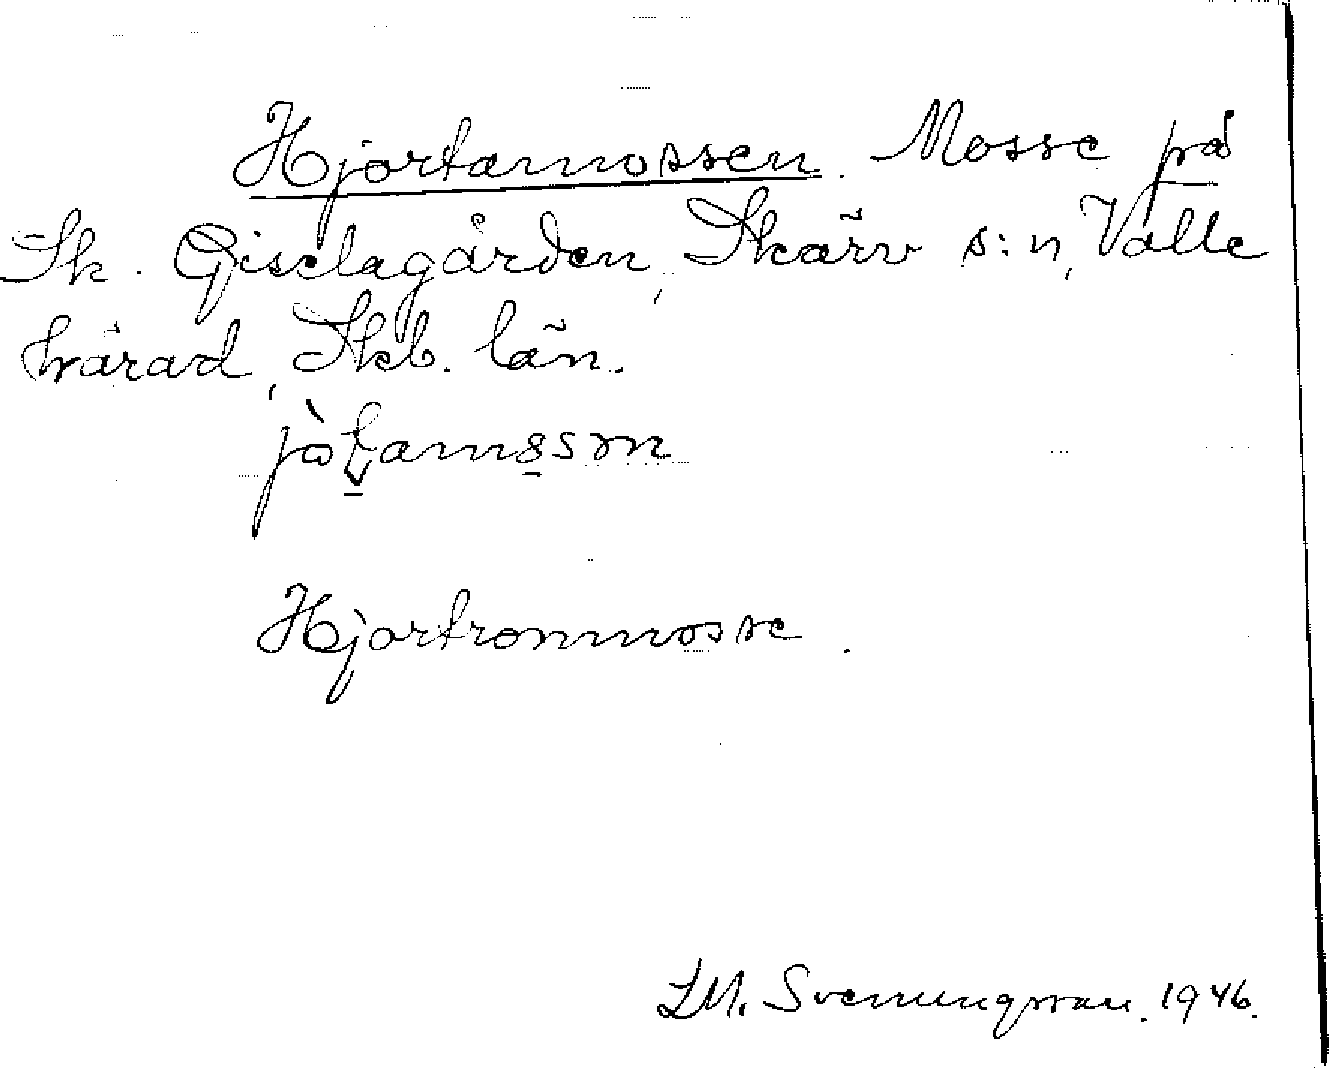 Hjortamossen. Mosse på
Sk. Giselagården, Skärv s:n, Valle
härad, Skb. län.
Hjortronmosse.
LM. Svenungsson. 1946.